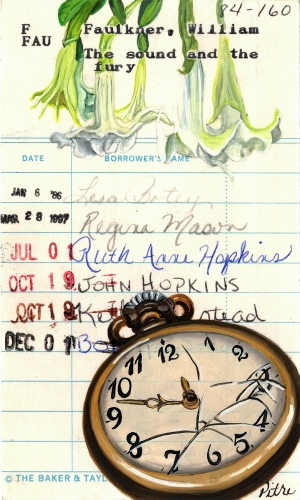 84-160
F Faulkner, William
FAU The sound and the
fury
DATE BORROWER'S NAME
JAN 6 '86 Lesa Botey
MAR 28 1987 Regina Mason
JUL 01 Ruth Anne Hopkins
OCT 19 JOHN HOPKINS
OCT 19
DEC 01
12 1 2 3 4 5 6 7 8 9 10 11
© THE BAKER & TAYL
Pitre